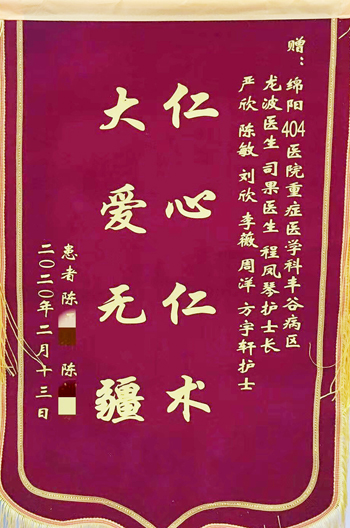 赠：绵阳404医院重症医学科丰谷病区
龙波医生 司果医生 程凤琴护士长
严欣 陈敏 刘欣 李薇 周洋 方宇轩护士
仁心仁术
大爱无疆
患者 陈 陈
二〇二〇年二月十三日